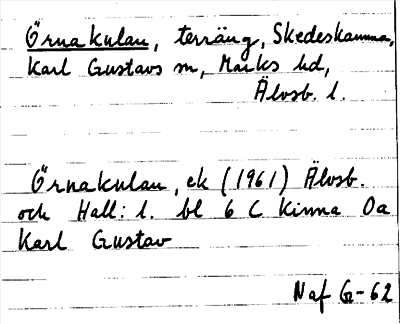 Örnakulan, terräng, Skedeskamma,
Karl Gustavs sn, Marks hd,
Älvsb. l.
Örnakulan, ek (1961) Älvsb.
och Hall: l. bl 6 C Kinna Oa
Karl Gustav
Naf G-62